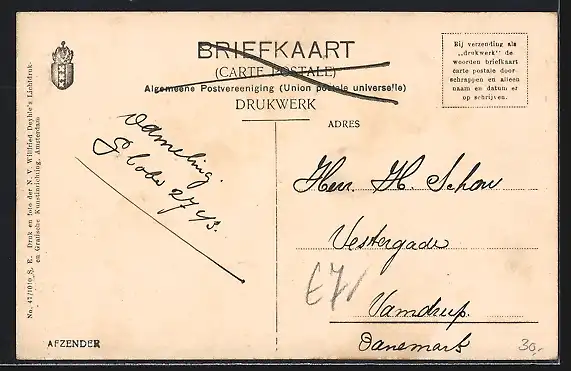 BRIEFKAART
(CARTE POSTALE)
Algemeene Postvereeniging (Union postale universelle)
DRUKWERK
Bij verzending als
„drukwerk" de
woorden briefkaart
carte postale door-
schrappen en alleen
naam en datum er
op schrijven.
ADRES
Herr. H. Schou
Vestergade
Vamdrup.
Danemark
No. 47/1010 S. E. Druk en foto der N. V. Willfried Deyhle's Lichtdruk-
en Grafische Kunstinrichting, Amsterdam
AFZENDER
30,-